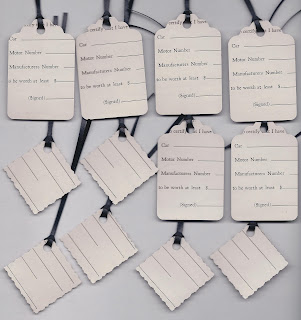 certify I have
Car
Motor Number
Manufacturers Number
to be worth at least $
(Signed)
certify I have
Car
Motor Number
Manufacturers Number
to be worth at least $
(Signed)
certify I have
Car
Motor Number
Manufacturers Number
to be worth at least $
(Signed)
certify I have
Car
Motor Number
Manufacturers Number
to be worth at least $
(Signed)
certify I have
Car
Motor Number
Manufacturers Number
to be worth at least $
(Signed)
certify I have
Car
Motor Number
Manufacturers Number
to be worth at least $
(Signed)